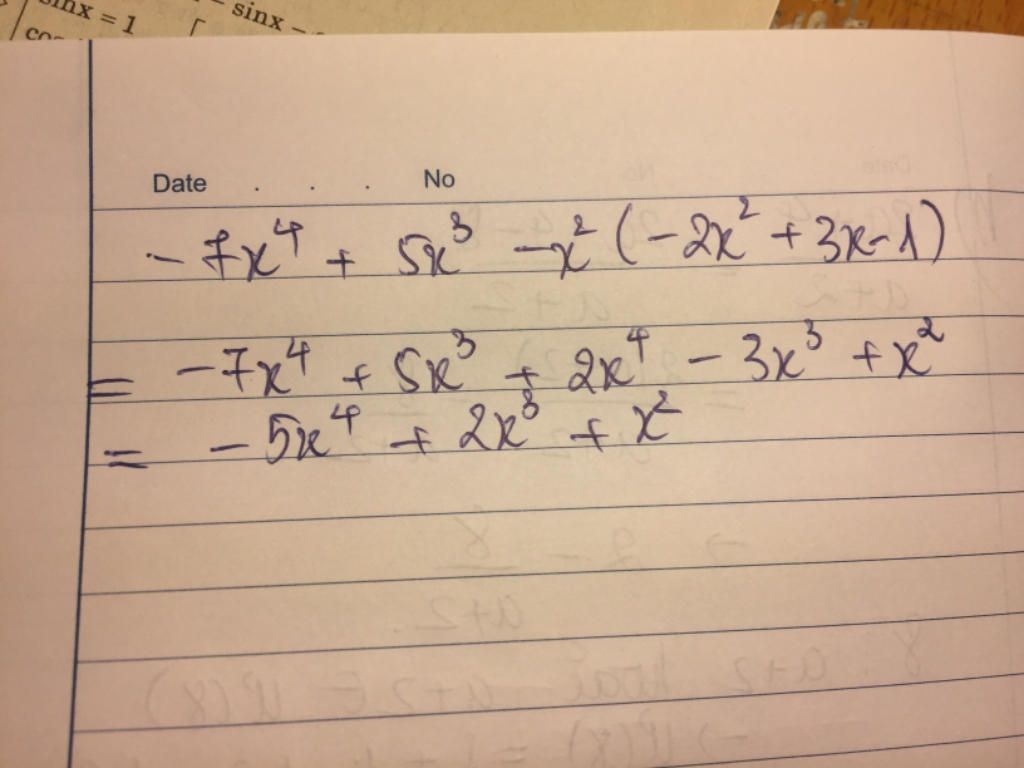 sinx = 1
sinx –
Date . . . No
-7x⁴ + 5x³ -x² (-2x² +3x-1)
= -7x⁴ + 5x³ + 2x⁴ - 3x³ +x²
= -5x⁴ + 2x³ + x²